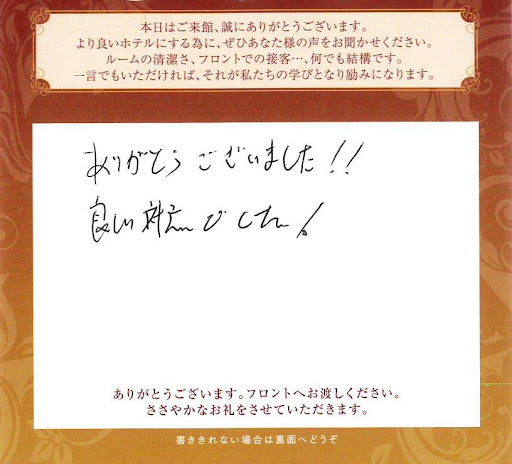 本日はご来館、誠にありがとうございます。
より良いホテルにする為に、ぜひあなた様の声をお聞かせください。
ルームの清潔さ、フロントでの接客…、何でも結構です。
一言でもいただければ、それが私たちの学びとなり励みになります。
ありがとうございました!!
良い対応でした!
ありがとうございます。フロントへお渡しください。
ささやかなお礼をさせていただきます。
書ききれない場合は裏面へどうぞ